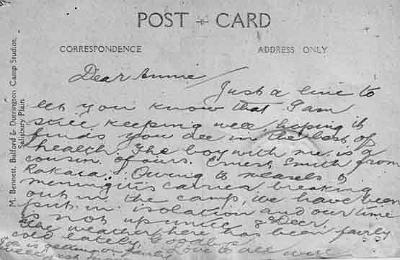 POST CARD
CORRESPONDENCE ADDRESS ONLY
M. Bennett, Bulford & Durrington Camp Studios,
Salisbury Plain.
Dear Annie
Just a line to
let you know that I am
still keeping well hoping it
finds you all in the best of
health. The boy with me is a
cousin of ours. Ernest Smith from
Rakaia. Owing to measels &
meningitis carries breaking
out in the camp we have been
put in isolation and our time
is not up until
The weather here has been fairly
cold lately. Goodbye
love to all